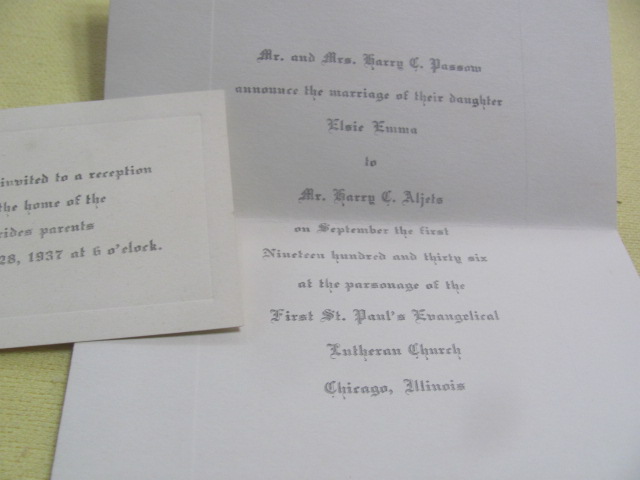 Mr. and Mrs. Harry C. Passow
announce the marriage of their daughter
Elsie Emma
to
Mr. Harry C. Aljets
on September the first
Nineteen hundred and thirty six
at the parsonage of the
First St. Paul's Evangelical
Lutheran Church
Chicago, Illinois
invited to a reception
the home of the
rides parents
28, 1937 at 6 o'clock.